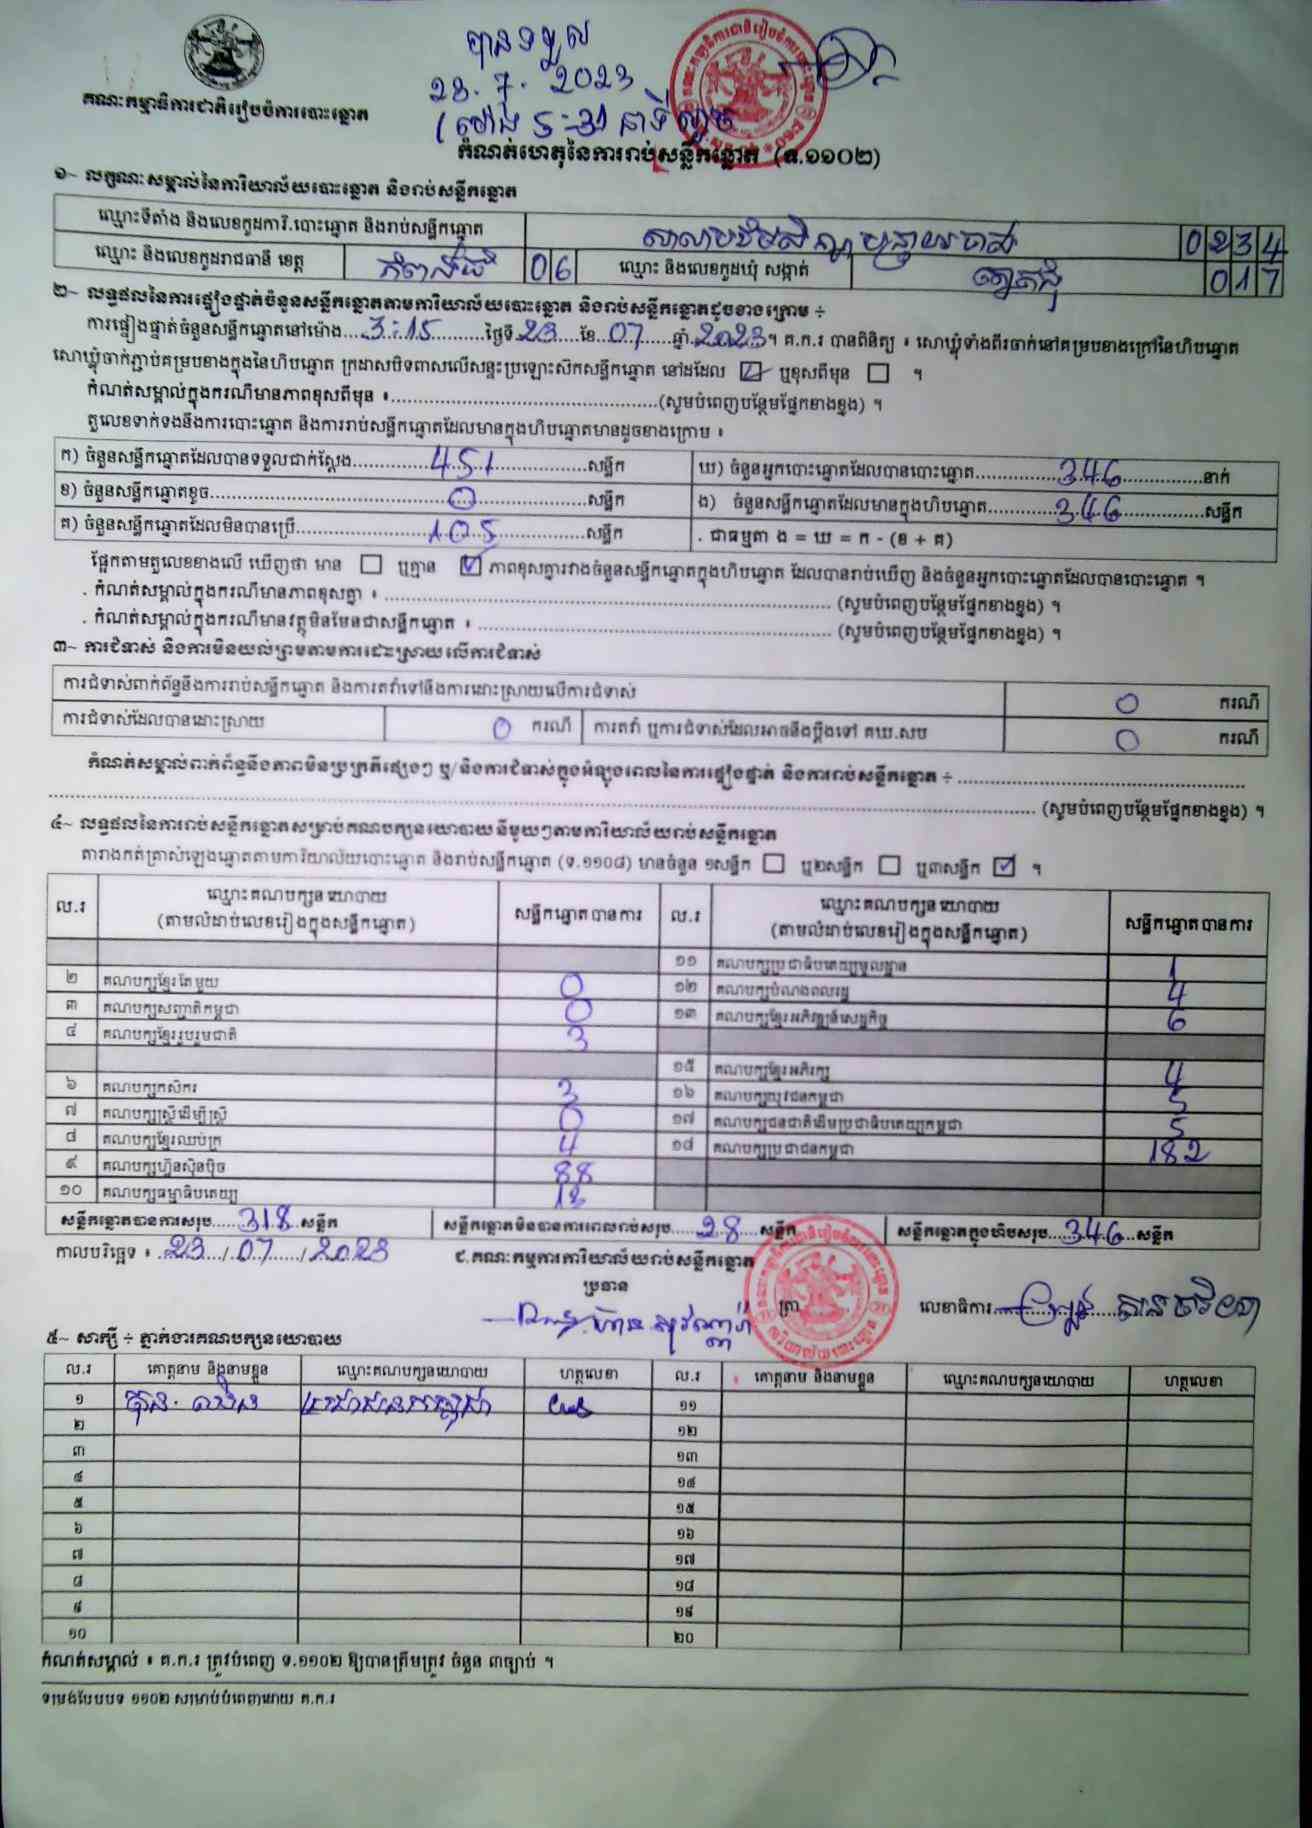 បានទទួល
23.7.2023
គណៈកម្មាធិការជាតិរៀបចំការបោះឆ្នោត
កំណត់ហេតុនៃការរាប់សន្លឹកឆ្នោត (ទ.១១០២)
១~ លក្ខណៈសម្គាល់នៃការិយាល័យបោះឆ្នោត និងរាប់សន្លឹកឆ្នោត
ឈ្មោះទីតាំង និងលេខកូដការិ.បោះឆ្នោត និងរាប់សន្លឹកឆ្នោត 0234
ឈ្មោះ និងលេខកូដរាជធានី ខេត្ត 06 ឈ្មោះ និងលេខកូដឃុំ សង្កាត់ 017
២~ លទ្ធផលនៃការផ្ទៀងផ្ទាត់ចំនួនសន្លឹកឆ្នោតតាមការិយាល័យបោះឆ្នោត និងរាប់សន្លឹកឆ្នោតដូចខាងក្រោម ÷
ការផ្ទៀងផ្ទាត់ចំនួនសន្លឹកឆ្នោតនៅម៉ោង 3:15 ថ្ងៃទី 23 ខែ 07 ឆ្នាំ 2023 ។ គ.ក.រ បានពិនិត្យ ៖ សោឃ្មុំទាំងពីរចាក់នៅគម្របខាងក្រៅនៃហិបឆ្នោត
សោឃ្មុំចាក់ភ្ជាប់គម្របខាងក្នុងនៃហិបឆ្នោត ក្រដាសបិទពាសលើសន្ទះប្រឡោះស៊កសន្លឹកឆ្នោត នៅដដែល ☑ ឬខុសពីមុន ☐ ។
កំណត់សម្គាល់ក្នុងករណីមានភាពខុសពីមុន ៖ (សូមបំពេញបន្ថែមផ្នែកខាងខ្នង) ។
តួលេខទាក់ទងនឹងការបោះឆ្នោត និងការរាប់សន្លឹកឆ្នោតដែលមានក្នុងហិបឆ្នោតមានដូចខាងក្រោម ៖
ក) ចំនួនសន្លឹកឆ្នោតដែលបានទទួលជាក់ស្តែង 451 សន្លឹក ឃ) ចំនួនអ្នកបោះឆ្នោតដែលបានបោះឆ្នោត 346 នាក់
ខ) ចំនួនសន្លឹកឆ្នោតខូច 0 សន្លឹក ង) ចំនួនសន្លឹកឆ្នោតដែលមានក្នុងហិបឆ្នោត 346 សន្លឹក
គ) ចំនួនសន្លឹកឆ្នោតដែលមិនបានប្រើ 105 សន្លឹក . ជាធម្មតា ង = ឃ = ក - (ខ + គ)
ផ្អែកតាមតួលេខខាងលើ ឃើញថា មាន ☐ ឬគ្មាន ☑ ភាពខុសគ្នារវាងចំនួនសន្លឹកឆ្នោតក្នុងហិបឆ្នោត ដែលបានរាប់ឃើញ និងចំនួនអ្នកបោះឆ្នោតដែលបានបោះឆ្នោត ។
. កំណត់សម្គាល់ក្នុងករណីមានភាពខុសគ្នា ៖ (សូមបំពេញបន្ថែមផ្នែកខាងខ្នង) ។
. កំណត់សម្គាល់ក្នុងករណីមានវត្ថុមិនមែនជាសន្លឹកឆ្នោត ៖ (សូមបំពេញបន្ថែមផ្នែកខាងខ្នង) ។
៣~ ការជំទាស់ និងការមិនយល់ព្រមតាមការដោះស្រាយលើការជំទាស់
ការជំទាស់ពាក់ព័ន្ធនឹងការរាប់សន្លឹកឆ្នោត និងការតវ៉ាទៅនឹងការដោះស្រាយលើការជំទាស់ 0 ករណី
ការជំទាស់ដែលបានដោះស្រាយ 0 ករណី ការតវ៉ា ឬការជំទាស់ដែលអាចនឹងប្តឹងទៅ គឃ.សប 0 ករណី
កំណត់សម្គាល់ពាក់ព័ន្ធនឹងភាពមិនប្រក្រតីផ្សេងៗ ឬ/និងការជំទាស់ក្នុងអំឡុងពេលនៃការផ្ទៀងផ្ទាត់ និងការរាប់សន្លឹកឆ្នោត ÷
(សូមបំពេញបន្ថែមផ្នែកខាងខ្នង) ។
៤~ លទ្ធផលនៃការរាប់សន្លឹកឆ្នោតសម្រាប់គណបក្សនយោបាយនីមួយៗតាមការិយាល័យរាប់សន្លឹកឆ្នោត
តារាងកត់ត្រាសំឡេងឆ្នោតតាមការិយាល័យបោះឆ្នោត និងរាប់សន្លឹកឆ្នោត (ទ.១១០៨) មានចំនួន ១សន្លឹក ☐ ឬ២សន្លឹក ☐ ឬ៣សន្លឹក ☑ ។
ល.រ ឈ្មោះគណបក្សនយោបាយ (តាមលំដាប់លេខរៀងក្នុងសន្លឹកឆ្នោត) សន្លឹកឆ្នោតបានការ ល.រ ឈ្មោះគណបក្សនយោបាយ (តាមលំដាប់លេខរៀងក្នុងសន្លឹកឆ្នោត) សន្លឹកឆ្នោតបានការ
១១ គណបក្សប្រជាធិបតេយ្យមូលដ្ឋាន 1
២ គណបក្សខ្មែរតែមួយ 0 ១២ គណបក្សបំណងពលរដ្ឋ 4
៣ គណបក្សសញ្ជាតិកម្ពុជា 0 ១៣ គណបក្សខ្មែរអភិវឌ្ឍន៍សេដ្ឋកិច្ច 6
៤ គណបក្សខ្មែររួបរួមជាតិ 3
១៥ គណបក្សខ្មែរអភិរក្ស 4
៦ គណបក្សកសិករ 3 ១៦ គណបក្សយុវជនកម្ពុជា 5
៧ គណបក្សស្ត្រីដើម្បីស្ត្រី 0 ១៧ គណបក្សជនជាតិដើមប្រជាធិបតេយ្យកម្ពុជា 5
៨ គណបក្សខ្មែរឈប់ក្រ 4 ១៨ គណបក្សប្រជាជនកម្ពុជា 182
៩ គណបក្សហ៊្វុនស៊ិនប៉ិច 88
១០ គណបក្សធម្មាធិបតេយ្យ 13
សន្លឹកឆ្នោតបានការសរុប 318 សន្លឹក សន្លឹកឆ្នោតមិនបានការពេលរាប់សរុប 28 សន្លឹក សន្លឹកឆ្នោតក្នុងហិបសរុប 346 សន្លឹក
កាលបរិច្ឆេទ ៖ 23/07/2023 ជ.គណៈកម្មការការិយាល័យរាប់សន្លឹកឆ្នោត
ប្រធាន
ត្រា លេខាធិការ
៥~ សាក្សី ÷ ភ្នាក់ងារគណបក្សនយោបាយ
ល.រ គោត្តនាម និងនាមខ្លួន ឈ្មោះគណបក្សនយោបាយ ហត្ថលេខា ល.រ គោត្តនាម និងនាមខ្លួន ឈ្មោះគណបក្សនយោបាយ ហត្ថលេខា
១ ប្រជាជនកម្ពុជា ១១
២ ១២
៣ ១៣
៤ ១៤
៥ ១៥
៦ ១៦
៧ ១៧
៨ ១៨
៩ ១៩
១០ ២០
កំណត់សម្គាល់ ៖ គ.ក.រ ត្រូវបំពេញ ទ.១១០២ ឱ្យបានត្រឹមត្រូវ ចំនួន ៣ច្បាប់ ។
ទម្រង់បែបបទ ១១០២ សម្រាប់បំពេញដោយ គ.ក.រ